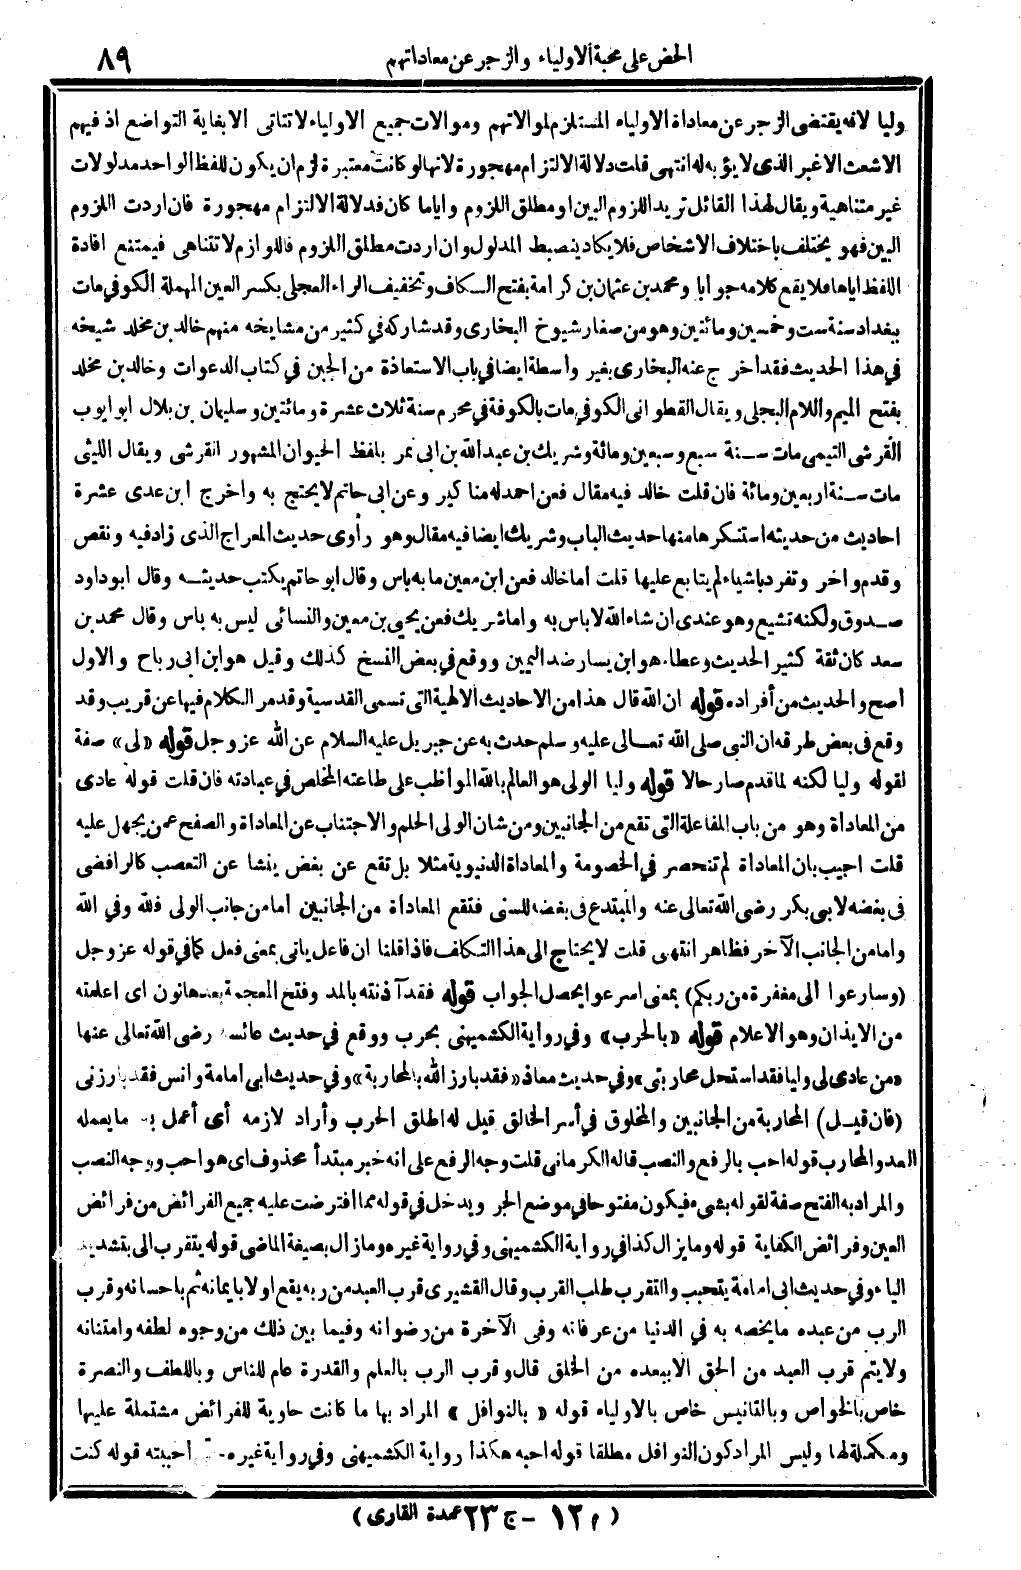 الحض على محبة الاولياء والزجر عن معاداتهم ٨٩
وليا لانه يقتضى الزجر عن معاداة الاولياء المستلزم لموالاتهم وموالات جميع الاولياء لا تتاتى الا بغاية التواضع اذ فيهم
الاشعث الاغبر الذى لا يؤبه له انتهى قلت دلالة الالتزام مهجورة لانها لو كانت معتبرة لزم ان يكون للفظ الواحد مدلولات
غير متناهية ويقال لهذا القائل تريد اللزوم البين او مطلق اللزوم واياما كان فدلالة الالتزام مهجورة فان اردت اللزوم
البين فهو يختلف باختلاف الاشخاص فلا يكاد ينصبط المدلول وان اردت مطلق اللزوم فاللوازم لا تتناهى فيمتنع افادة
اللفظ اياها فلا يقع كلامه جوابا ومحمد بن عثمان بن كرامة بفتح الكاف وتخفيف الراء العجلى بكسر العين المهملة الكوفي مات
ببغداد سنة ست وخمسين ومائتين وهو من صغار شيوخ البخارى وقد شاركه في كثير من مشايخه منهم خالد بن مخلد شيخه
في هذا الحديث فقد أخرج عنه البخارى بغير واسطة ايضا في باب الاستعاذة من الجبن في كتاب الدعوات وخالد بن مخلد
بفتح الميم واللام البجلى ويقال القطوانى الكوفي مات بالكوفة في محرم سنة ثلاث عشرة ومائتين وسليمان بن بلال ابو ايوب
القرشى التيمى مات سنة سبع وسبعين ومائة وشريك بن عبد الله بن ابى نمر بلفظ الحيوان المشهور القرشى ويقال الليثى
مات سنة اربعين ومائة فان قلت خالد فيه مقال فعن احمد له مناكير وعن ابى حاتم لا يحتج به واخرج ابن عدى عشرة
احاديث من حديثه استنكرها منها حديث الباب وشريك ايضا فيه مقال وهو رأوى حديث المعراج الذى زاد فيه ونقص
وقدم واخر وتفرد باشياء لم يتابع عليها قلت اما خالد فعن ابن معين ما به باس وقال ابو حاتم يكتب حديثه وقال ابو داود
صدوق ولكنه تشيع وهو عندى ان شاء الله لا باس به واما شريك فعن يحيى بن معين والنسائى ليس به باس وقال محمد بن
سعد كان ثقة كثير الحديث وعطاء هو ابن يسار ضد اليمين ووقع في بعض النسخ كذلك وقيل هو ابن ابى رباح والاول
أصح والحديث من أفراده قوله ان الله قال هذا من الاحاديث الالهية التى تسمى القدسية وقد مر الكلام فيها عن قريب وقد
وقع فى بعض طرقه ان النبى صلى الله تعالى عليه وسلم حدث به عن جبريل عليه السلام عن الله عز وجل قوله «لى» صفة
لقوله وليا لكنه لما قدم صار حالا قوله وليا الولى هو العالم بالله المواظب على طاعته المخلص في عبادته فان قلت قوله عادى
من المعاداة وهو من باب المفاعلة التى تقع من الجانبين ومن شان الولى الحلم والاجتناب عن المعاداة والصفح عمن يجهل عليه
قلت اجيب بان المعاداة لم تنحصر في الخصومة والمعاداة الدنيوية مثلا بل تقع عن بغض ينشا عن التعصب كالرافضى
فى بغضه لابى بكر رضى الله تعالى عنه والمبتدع فى بغضه للسنى فتقع المعاداة من الجانبين أما من جانب الولى فلله وفي الله
وامامن الجانب الآخر فظاهر انتهى قلت لا يحتاج الى هذا التكلف فاذا قلنا ان فاعل ياتى بمعنى فعل كما في قوله عز وجل
(وسارعوا الى مغفرة من ربكم) بمعنى اسرعوا يحصل الجواب قوله فقد آذنته بالمد وفتح المعجمة بعدها نون اى اعلمته
من الايذان وهو الاعلام قوله «بالحرب» وفي رواية الكشميهنى بحرب ووقع في حديث عائشة رضى الله تعالى عنها
«من عادى لى وليا فقد استحل محاربتى» وفي حديث معاذ «فقد بارز الله بالمحاربة» وفي حديث ابى امامة وانس فقد بارزنى
(فان قيل) المحاربة من الجانبين والمخلوق في أسر الخالق قيل له اطلق الحرب وأراد لازمه أى أعمل به ما يعمله
العدو المحارب قوله احب بالرفع والنصب قاله الكرمانى قلت وجه الرفع على انه خبر مبتدأ محذوف اى هو احب ووجه النصب
والمراد به الفتح صفة لقوله بشىء فيكون مفتوحا في موضع الجر ويدخل في قوله مما افترضت عليه جميع الفرائض من فرائض
العين وفرائض الكفاية قوله وما يزال كذا في رواية الكشميهنى وفي رواية غيره وما زال بصيغة الماضى قوله يتقرب الى بتشديد
الياء وفي حديث ابى امامة يتحبب والتقرب طلب القرب وقال القشيرى قرب العبد من ربه يقع اولا بايمانه ثم باحسانه وقرب
الرب من عبده ما يخصه به في الدنيا من عرفانه وفى الآخرة من رضوانه وفيما بين ذلك من وجوه لطفه وامتنانه
ولا يتم قرب العبد من الحق الا ببعده من الخلق قال وقرب الرب بالعلم والقدرة عام للناس وباللطف والنصرة
خاص بالخواص وبالتانيس خاص بالاولياء قوله «بالنوافل» المراد بها ما كانت حاوية للفرائض مشتملة عليها
ومكملة لها وليس المراد كون النوافل مطلقا قوله احبه هكذا رواية الكشميهنى وفي رواية غيره احببته قوله كنت
(م ١٢ – ج ٢٣ عمدة القارى)